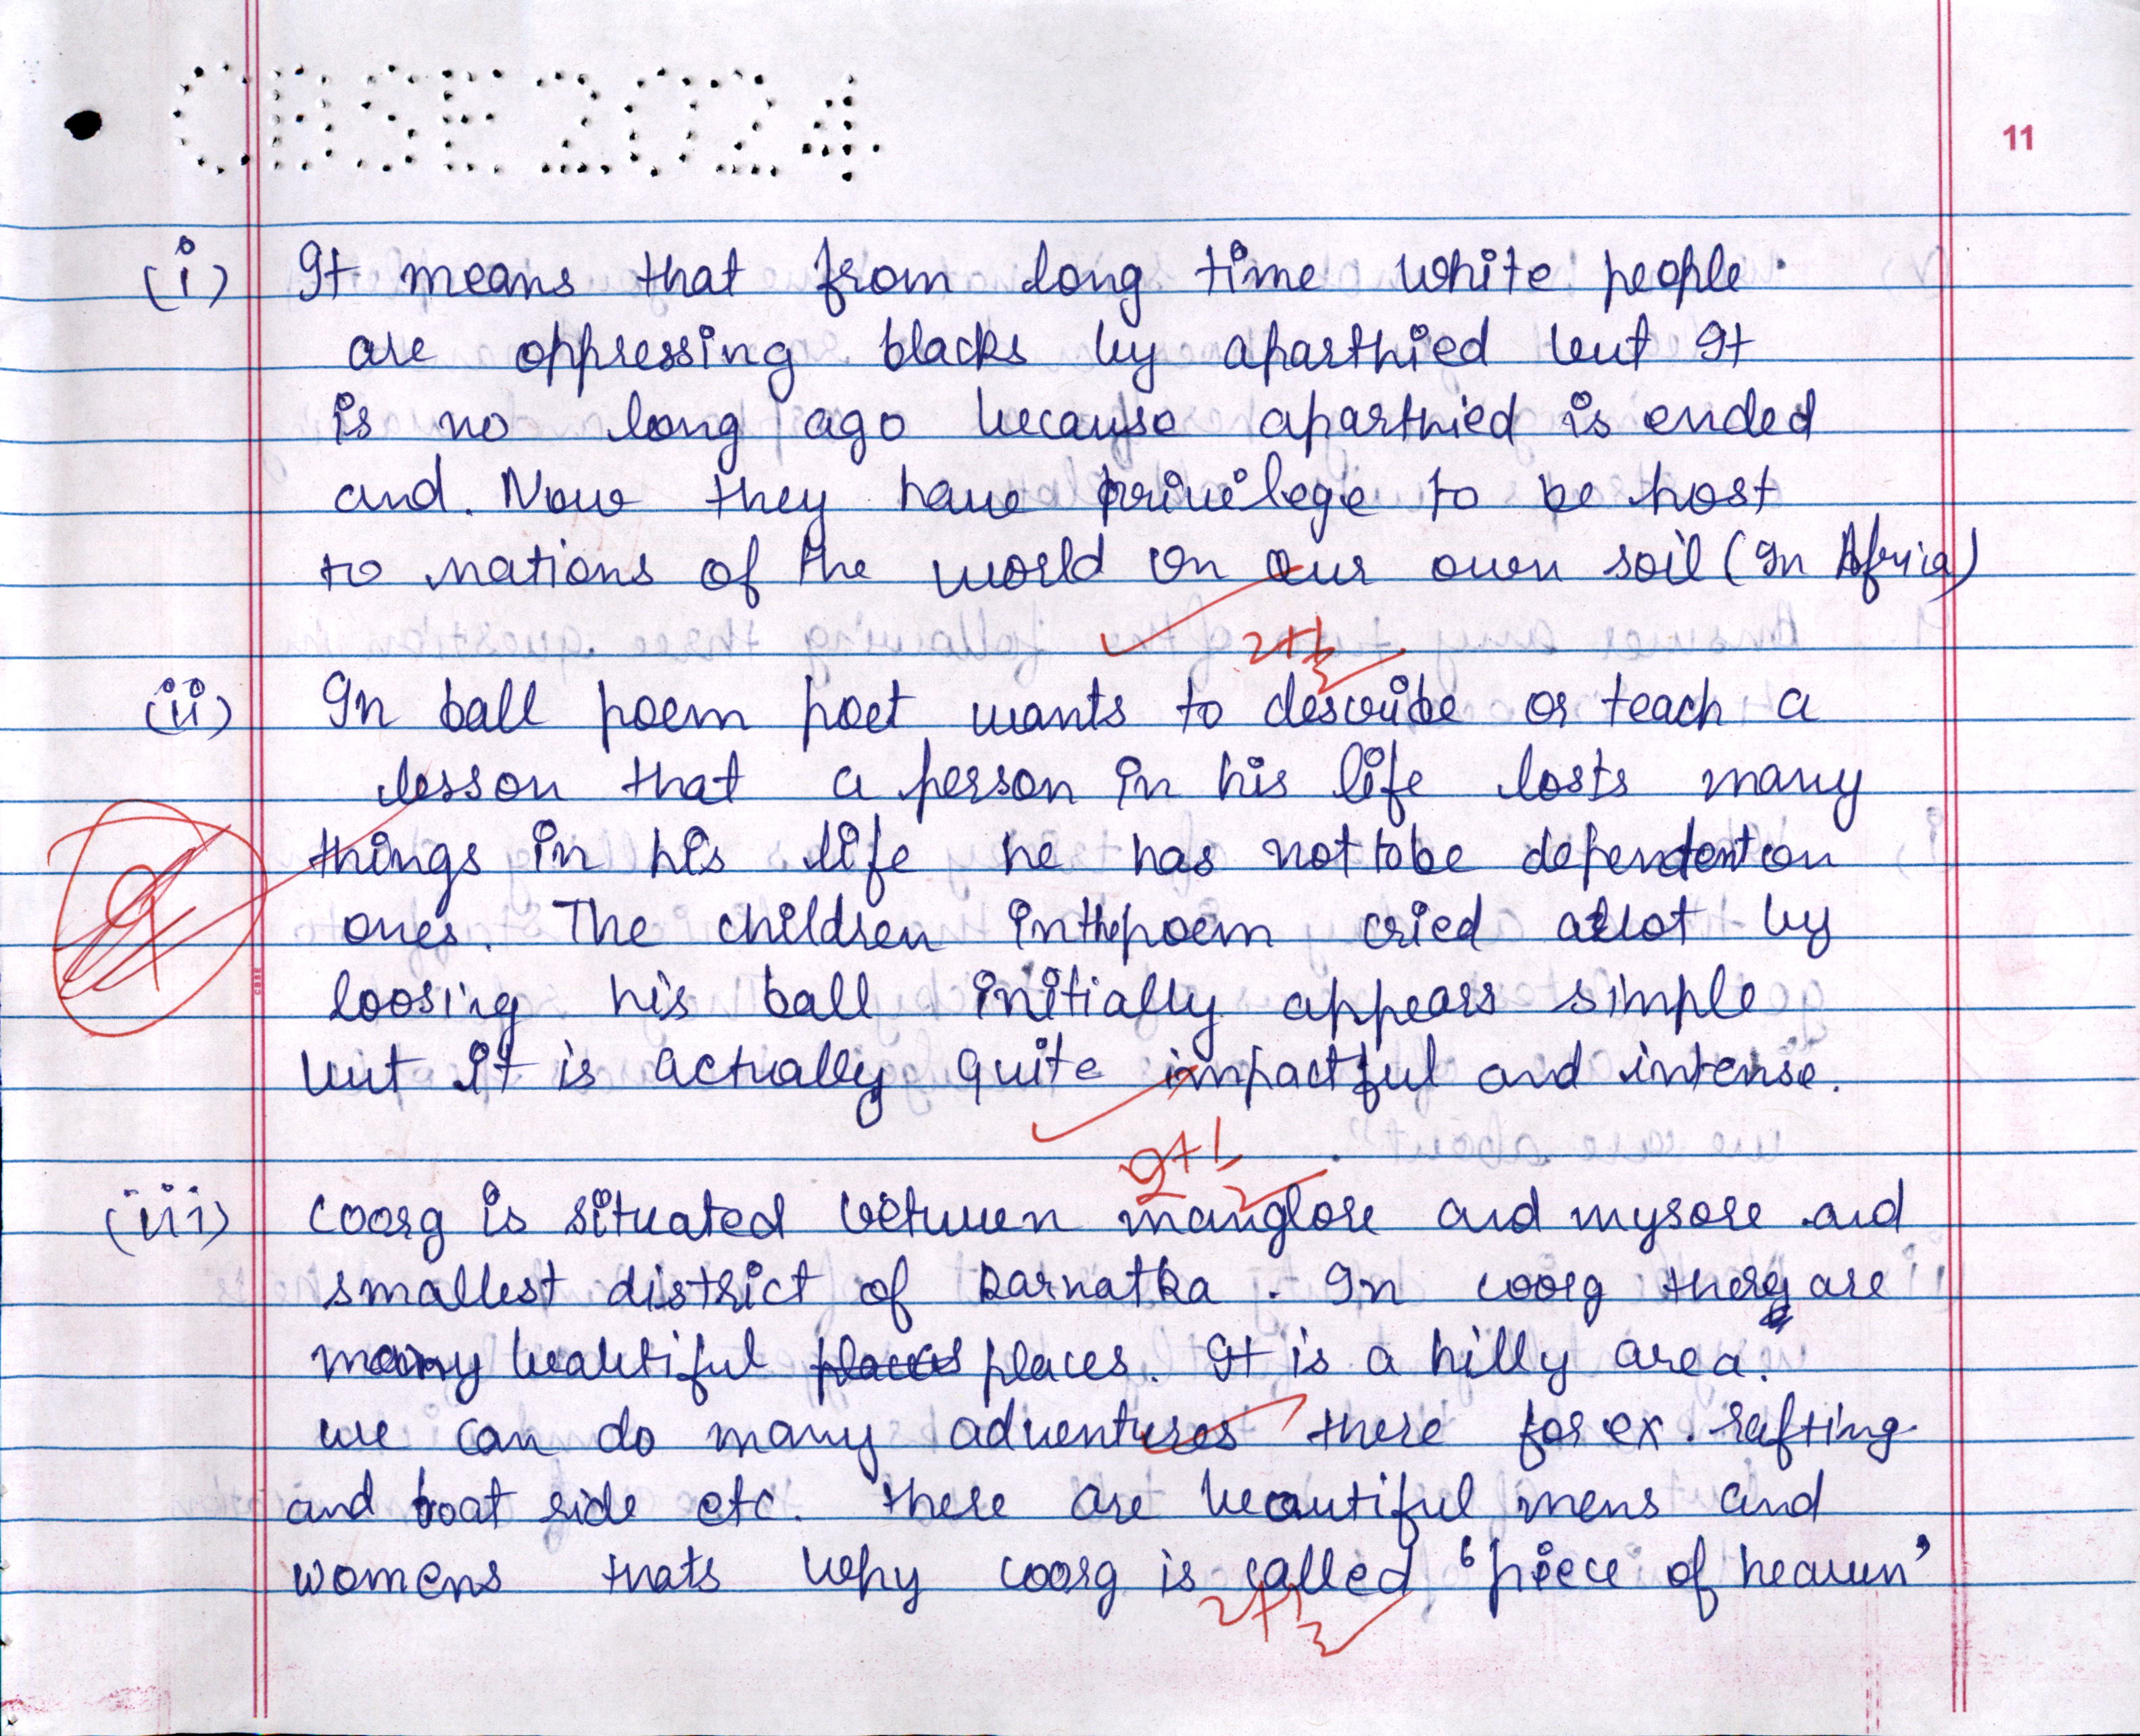 CBSE 2024
11
(i) It means that from long time white people
are oppressing blacks by aparthied but It
is no long ago because aparthied is ended
and. Now they have privilege to be host
to nations of the world on our own soil (In Africa)
(ii) In ball poem poet wants to describe or teach a
lesson that a person in his life losts many
things in his life he has not to be dependent on
ones. The children in the poem cried a lot by
loosing his ball initially appears simple
but it is actually quite impactful and intense.
2+1
(iii) Coorg is situated between manglore and mysore and
smallest district of karnatka. In coorg there are
many beautiful places. It is a hilly area.
we can do many adventures there for ex. rafting
and boat ride etc. there are beautiful mens and
womens thats why coorg is called 'piece of heaven'